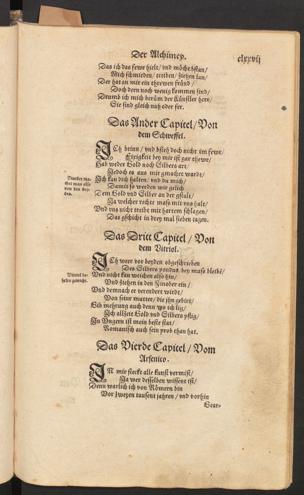 Der Alchimey. clxxvij
Das ich das fewr hielt / und möcht bstan /
Mich schmieden / treiben / ziehen lan /
Der hat an mir ein thewren fründ /
Doch dern noch wenig kommen sind /
Drumb ich mich berüm der Künstler herr /
Sie sind gleich nah oder ferr.
Das Ander Capitel / Von
dem Schweffel.
ICh brinn / und bsteh doch nicht im fewr /
Fixigkeit bey mir ist gar thewr /
Hab weder Gold noch Silbers art /
Jedoch es aus mir gmachet wardt /
Ich kan dich halten / und du mich /
Damit so werden wir gelich
Dem Gold und Silber an der gstalt /
Zu welcher rechte maß mit uns halt /
Und uns nicht treibt mit hartem schlagen /
Das gschicht in drey mal sieben tagen.
Das Dritt Capitel / Von
dem Vitriol.
ICh ward vor beyden abgescheiden
Des Silbers
Und nicht kan weichen also hin /
Und ziehen in den Zinober ein /
Und demnach er verendert wirdt /
Von seiner mutter / die ihn gebirt /
Gib mehrung auch denn wo ich lig /
Ich allzeit Gold und Silbers pflig /
In Ungern ist mein beste stat /
Romanisch auch sein prob than hat.
Das Vierde Capitel / Vom
Arsenico.
IN mir steckt alle kunst vermist /
Ja wer desselben wissens ist /
Denn warlich ich von Römern bin
Vor zweyen tausent jahren / und vorhin